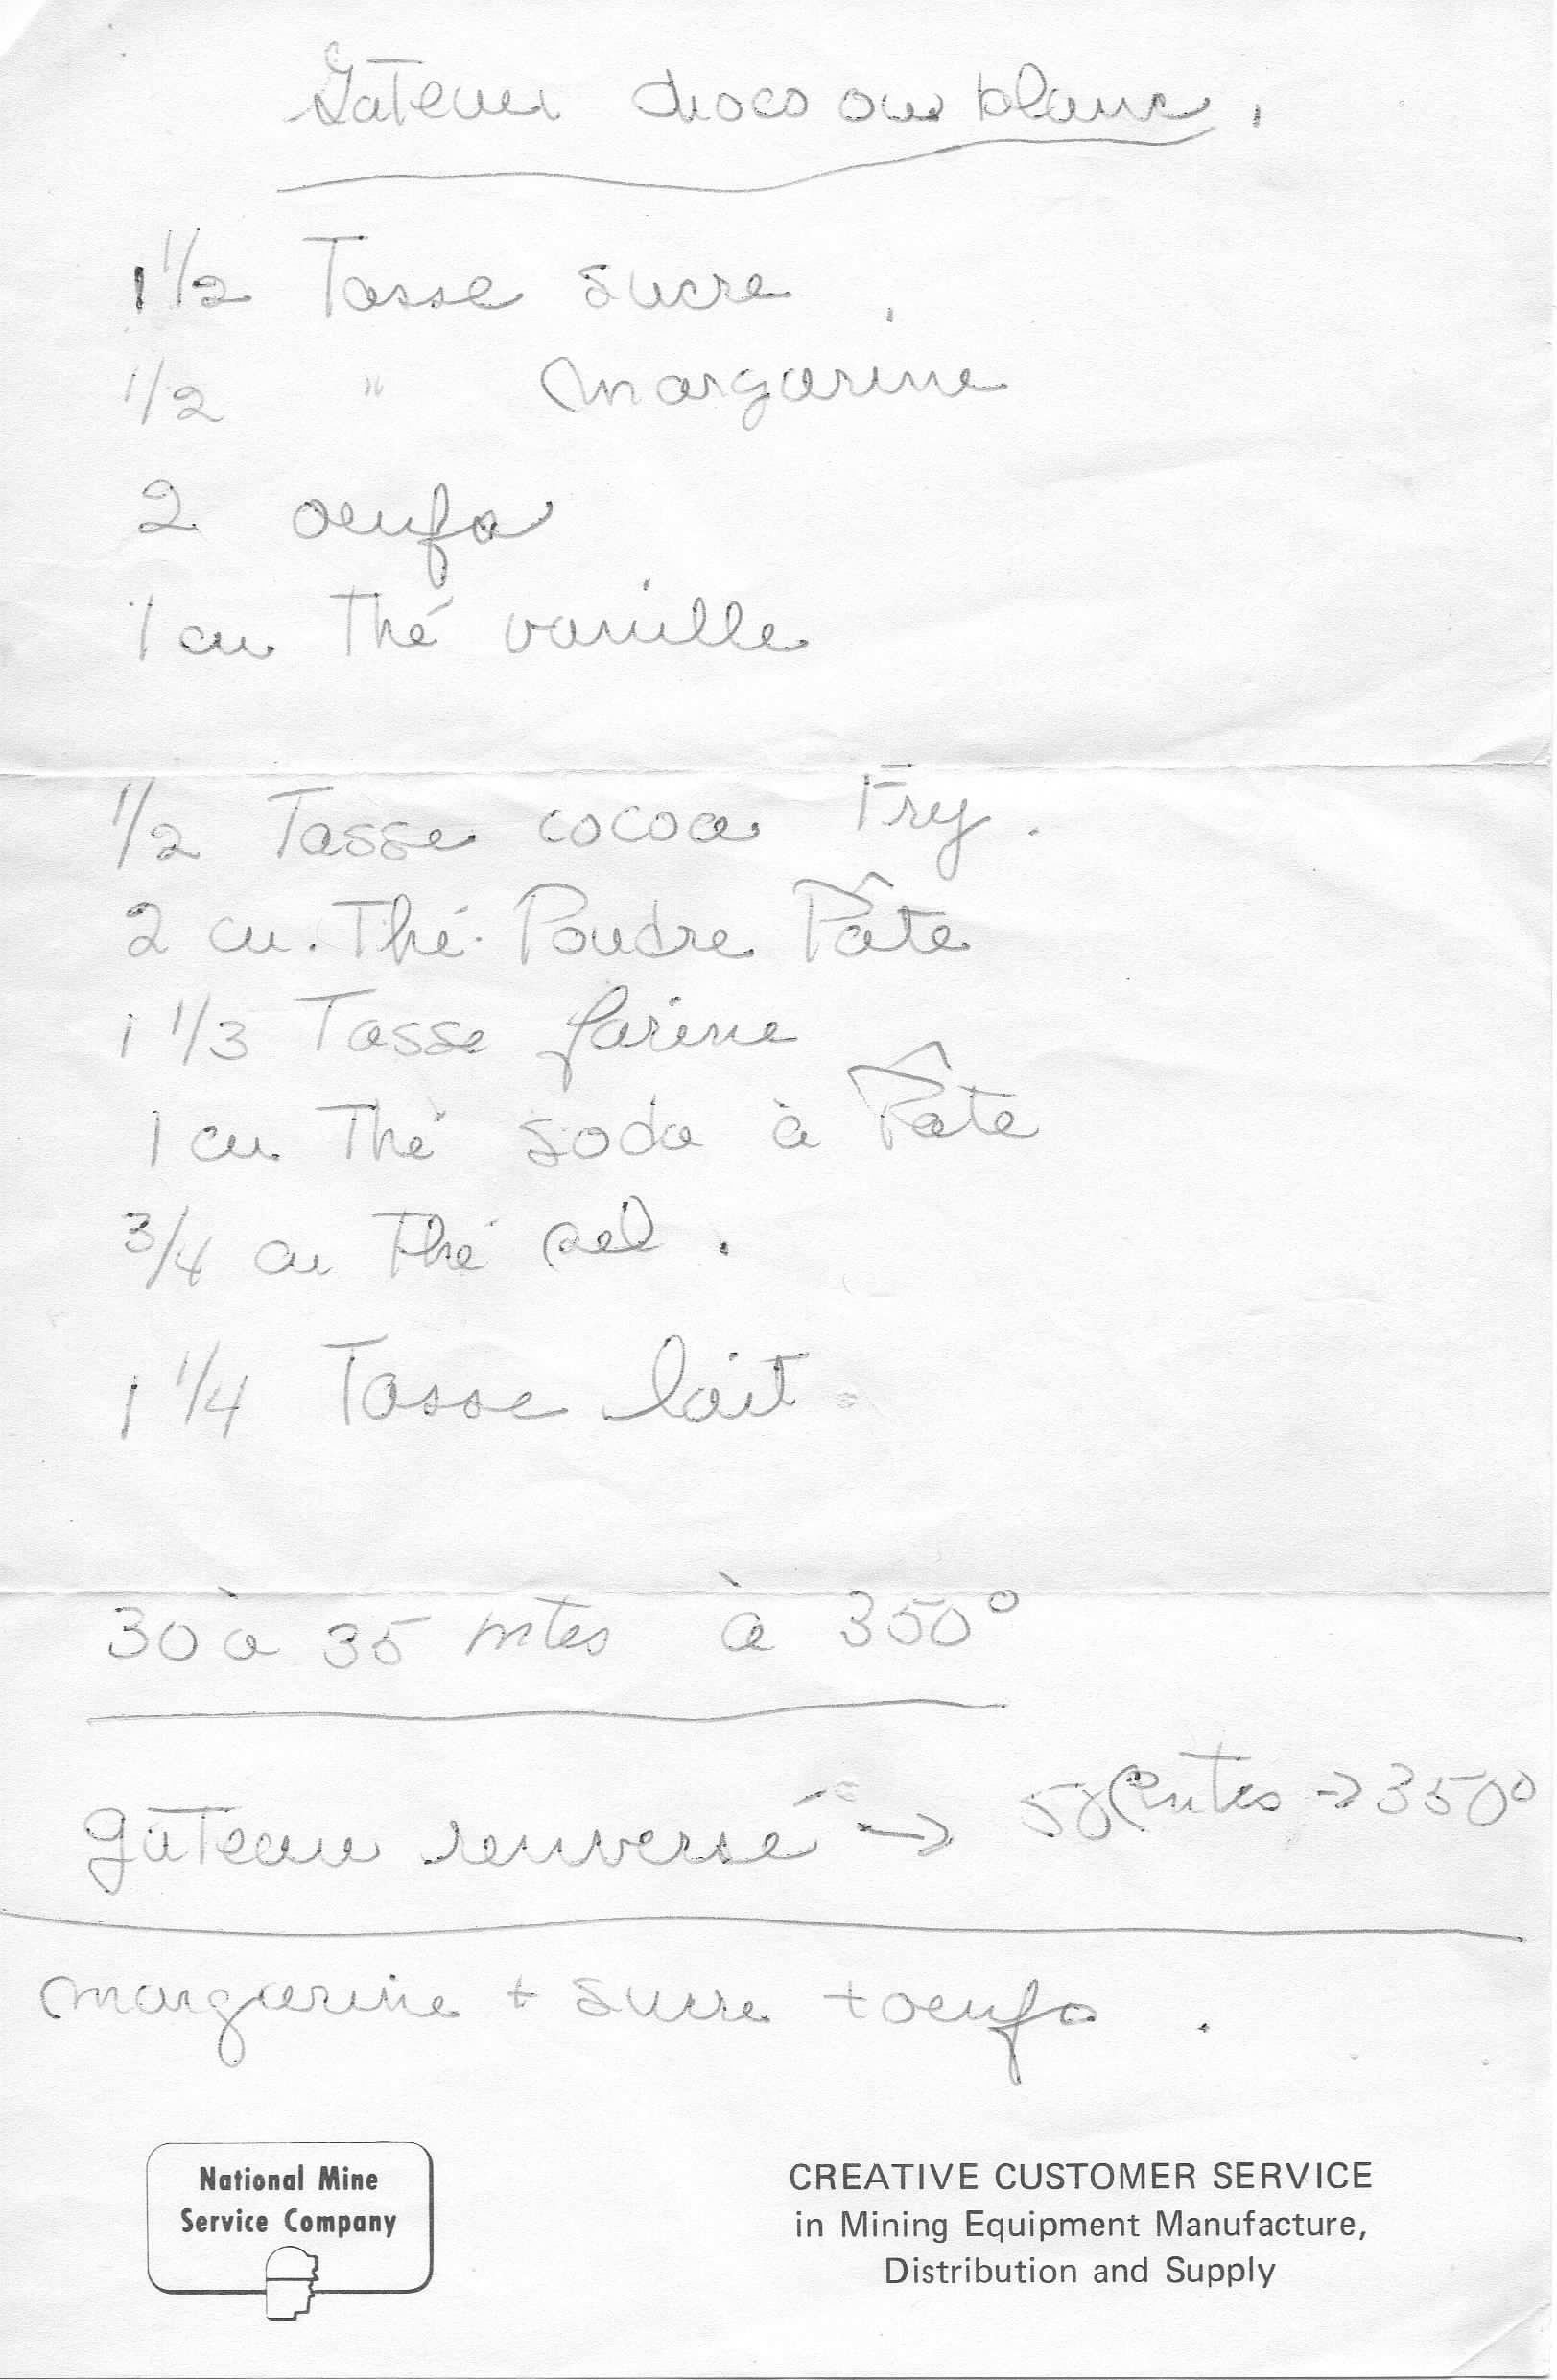 Gateau choco ou blanc.
1 1/2 Tasse sucre
1/2 " margarine
2 oeufs
1 cu Thé vanille
1/2 Tasse cocoa Fry.
2 cu. Thé. Poudre Pâte
1 1/3 Tasse farine
1 cu Thé soda à Pâte
3/4 cu Thé sel.
1 1/4 Tasse lait.
30 à 35 mtes à 350°
gâteau renversé → 50 mtes → 350°
margarine + sucre + oeufs.
National Mine
Service Company
CREATIVE CUSTOMER SERVICE
in Mining Equipment Manufacture,
Distribution and Supply